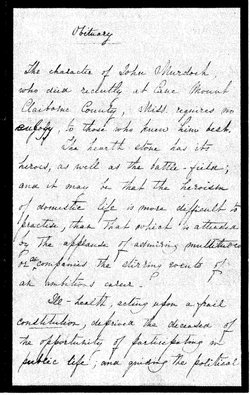 Obituary
The character of John Murdoch,
who died recently at Cane Mount
Claiborne County, Miss. requires no
eulogy, to those who knew him best.
The hearth stone has its
heroes, as well as the battle-field;
and it may be that the heroism
of domestic life is more difficult to
practise, than that which is attended
by the applause of admiring multitudes
or accompanies the stirring events of
an ambitious career.
Ill-health, acting upon a frail
constitution, deprived the deceased of
the opportunity of participating in
public life, and guiding the political